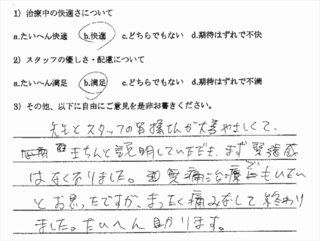 1) 治療中の快適さについて
a.たいへん快適 b.快適 c.どちらでもない d.期待はずれで不快
2) スタッフの優しさ・配慮について
a.たいへん満足 b.満足 c.どちらでもない d.期待はずれで不満
3) その他、以下に自由にご意見を是非お書きください。
先生とスタッフの皆様さんが大変やさしくて、
きちんと説明していただき、まず緊張感
はなくなりました。治療
と思ってたですが、まったく痛みなして終わり
ました。たいへん助ります。